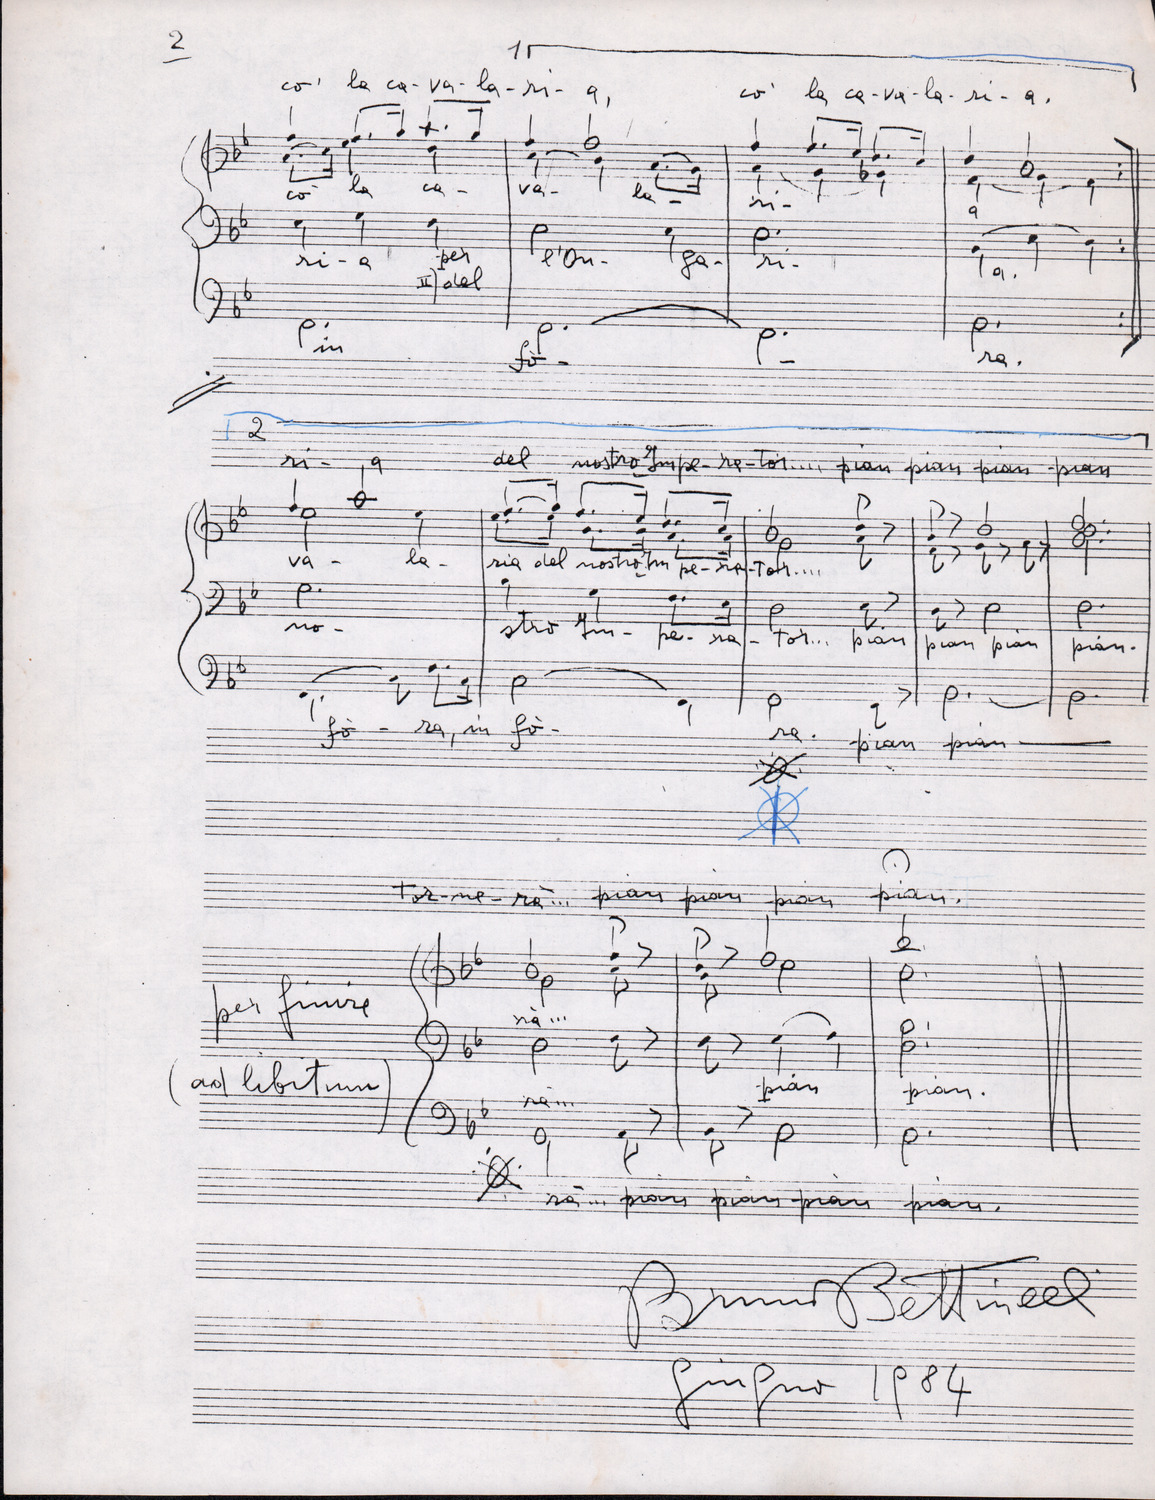 2
1
co' la ca-va-la-ri-a, co' la ca-va-la-ri-a.
co' la ca- va- la- ri- a
ri-a per l'On- ga- ri- a.
II) del
in fò- - ra.
2
ri- a del nostro Impe-ra-tor.... pian pian pian pian
va- la- ria del nostro Im pe-ra-tor....
no- stro Im- pe- ra- tor... pian pian pian pian.
fò- ra, in fò- ra. pian pian
tor-ne-rà... pian pian pian pian.
per finire
rà...
(ad libitum)
pian pian.
rà...
rà... pian pian pian pian.
Bruno Bettinelli
giugno 1984